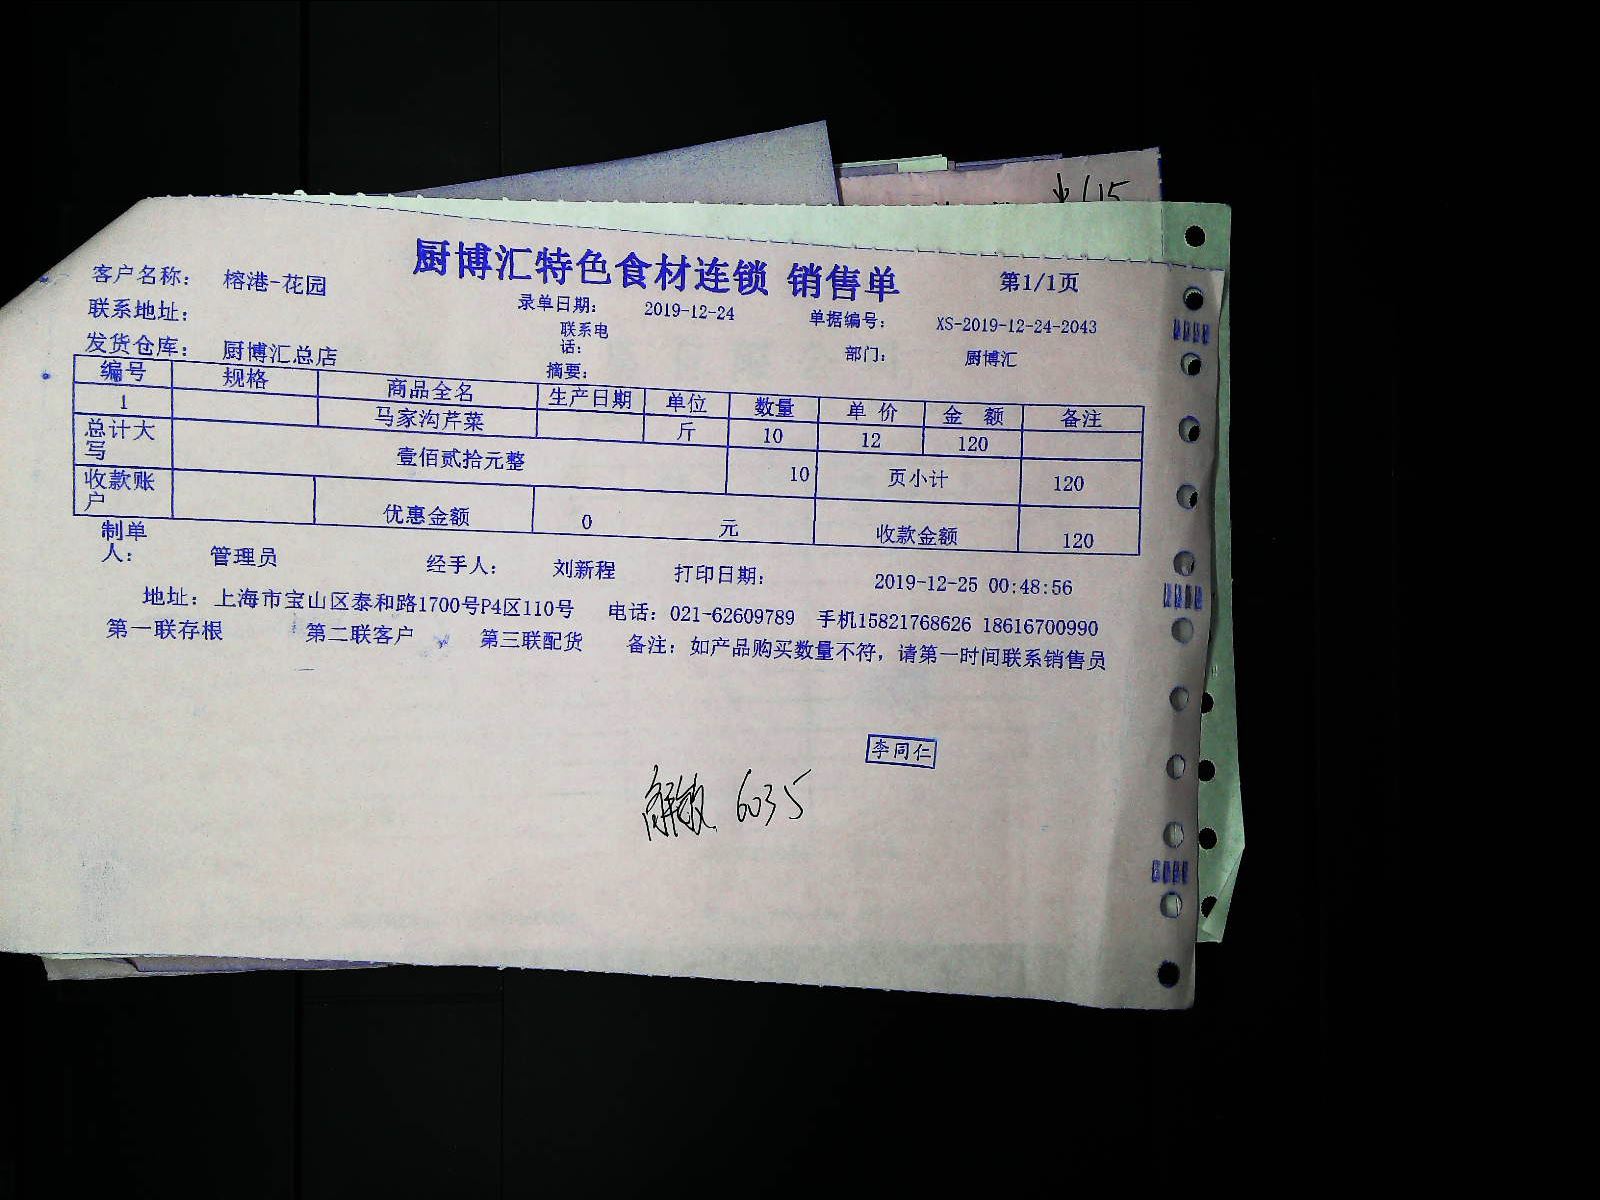 615
厨博汇特色食材连锁 销售单
第1/1页
客户名称： 榕港-花园
录单日期： 2019-12-24 单据编号： XS-2019-12-24-2043
联系地址： 联系电话： 部门： 厨博汇
发货仓库： 厨博汇总店 摘要：
编号 规格 商品全名 生产日期 单位 数量 单 价 金 额 备注
1 马家沟芹菜 斤 10 12 120
总计大写 壹佰贰拾元整 10 页小计 120
收款账户 优惠金额 0 元 收款金额 120
制单人： 管理员 经手人： 刘新程 打印日期： 2019-12-25 00:48:56
地址：上海市宝山区泰和路1700号P4区110号 电话：021-62609789 手机15821768626 18616700990
第一联存根 第二联客户 第三联配货 备注：如产品购买数量不符，请第一时间联系销售员
李同仁
6035